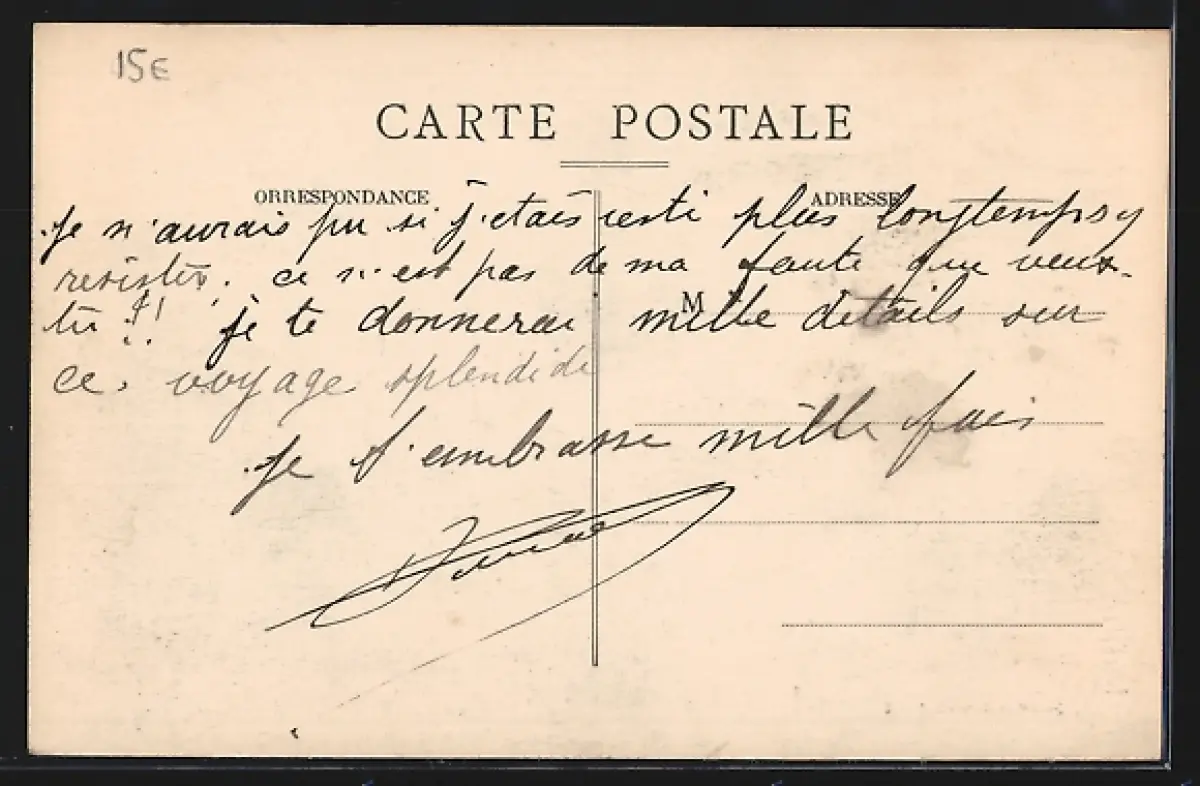 15E
CARTE POSTALE
ORRESPONDANCE
ADRESSE
Je n'aurais pu si j'etais resti plus longtemps y
resister. ce n'est pas de ma faute que veux-
tu !! je te donnerai mille détails sur
M
ce voyage splendide
Je t'embrasse mille fois